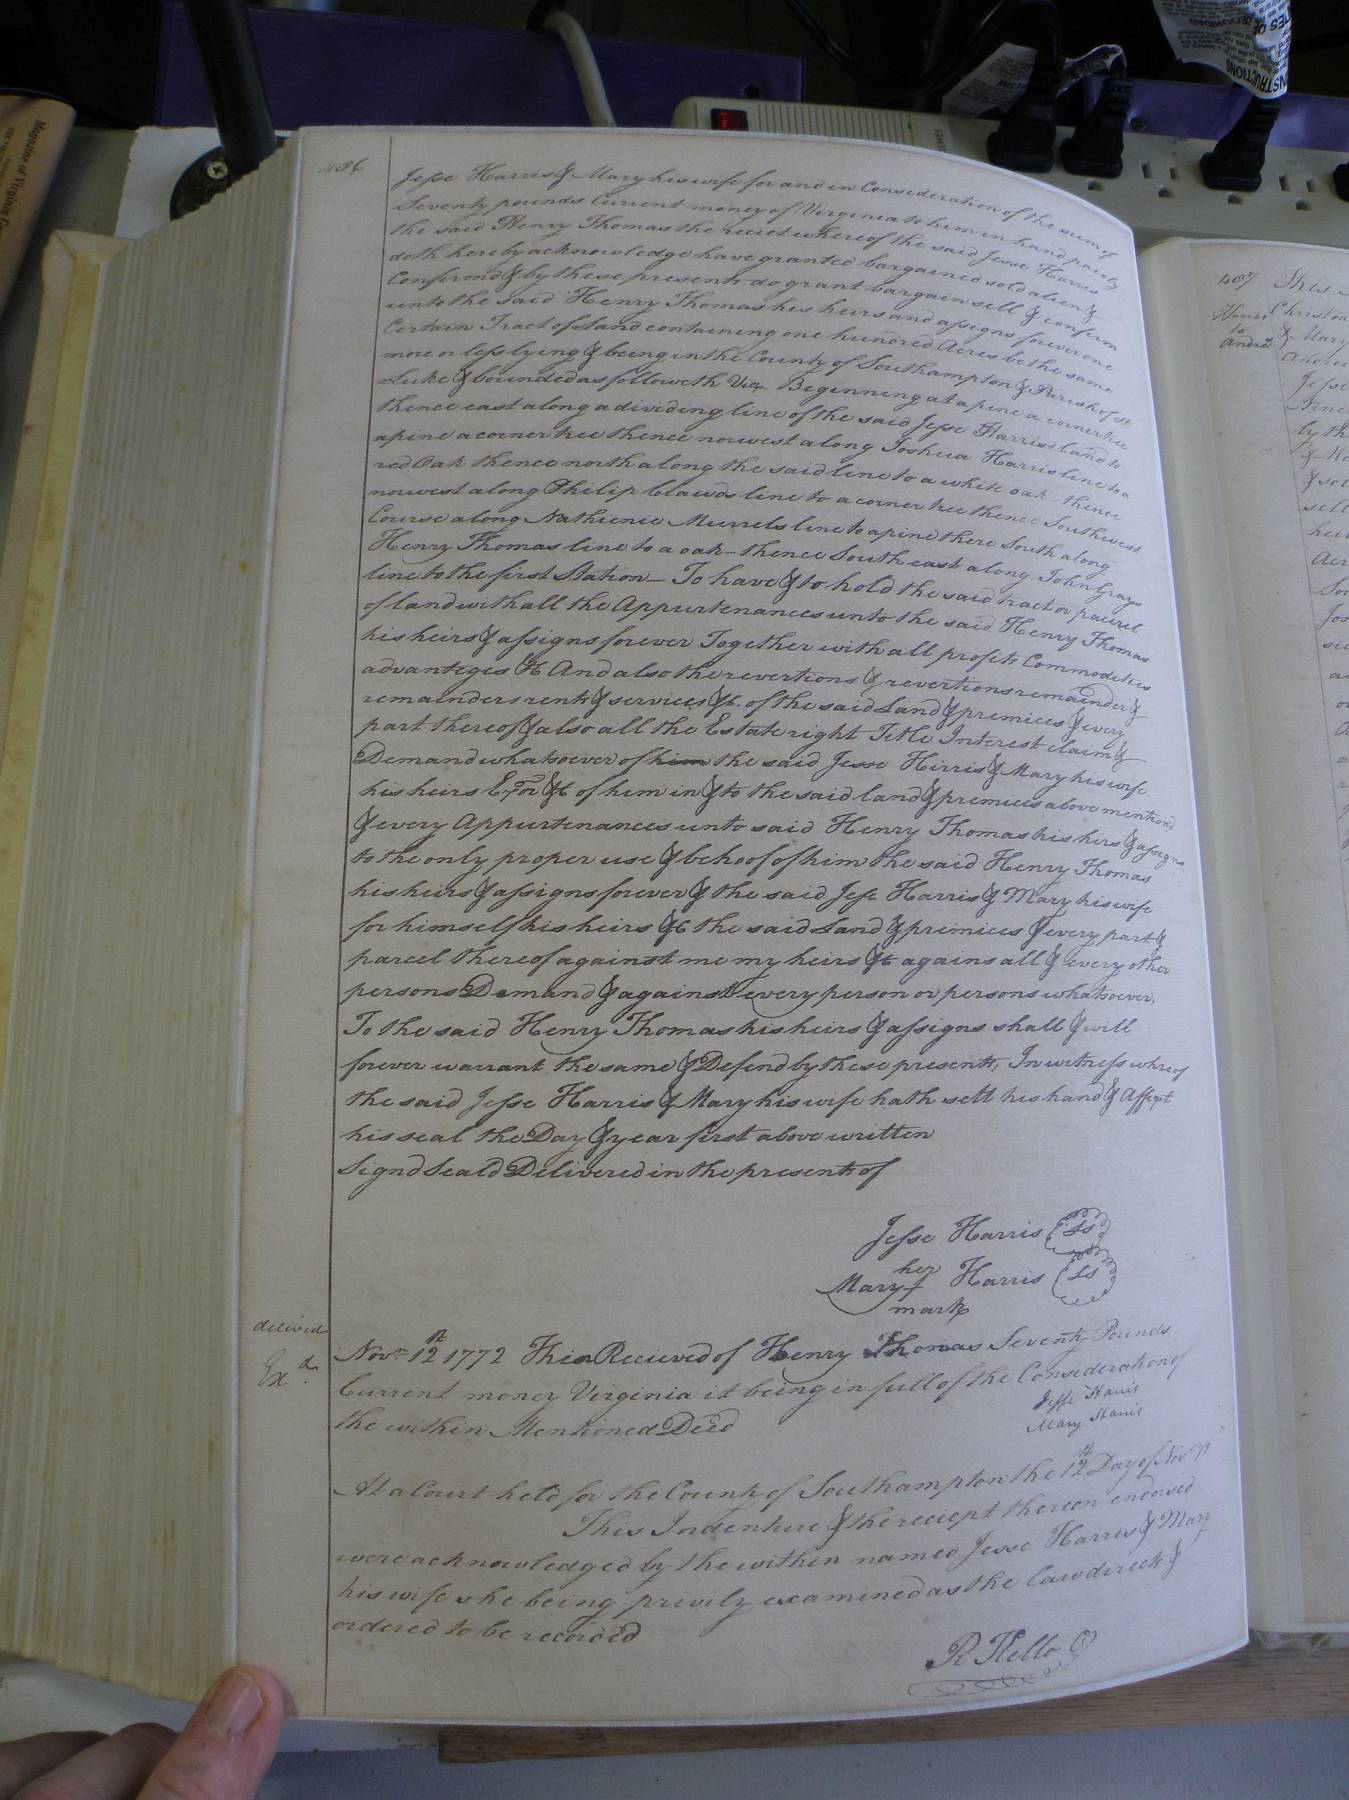 406
Jesse Harris & Mary his wife for and in Consideration of the sum of
Seventy pounds Current money of Virginia to him in hand paid by
the said Henry Thomas the reciet whereof the said Jesse Harris
doth hereby acknowledge have granted bargained sold alien &
Confirmd & by these presents do grant bargain sell & confirm
unto the said Henry Thomas his heirs and assigns forever one
Certain Tract of Land containing one hundred Acres be the same
more or less lying & being in the County of Southampton & Parish of St
Luke & bounded as followeth Viz. Beginning at a pine a corner tree
thence east along a dividing line of the said Jesse Harriss land to
a pine a corner tree thence nowest along Joshua Harris line to a
red Oak thence north along the said line to a white oak thence
nowest along Philip Clawds line to a corner tree thence Southwest
Course along Nathienie Murrels line to a pine there South along
Henry Thomas line to a oak – thence South east along John Grays
line to the first Station – To have & to hold the said tract or parcel
of land with all the Appurtenances unto the said Henry Thomas
his heirs & assigns forever Together with all profits Commodities
advanteges &c And also the revertions & revertions remainder &
remainders rents & services &c. of the said Land & premices & every
part thereof & also all the Estate right Title Interest claim &
Demand whatsoever of him the said Jesse Hirris & Mary his wife
his heirs Exor &c of him in & to the said land & premices above mentiond
& every Appurtenances unto said Henry Thomas his hirs & assigns
to the only proper use & behoof of him the said Henry Thomas
his heirs & assigns forever & the said Jesse Harris & Mary his wife
for himself his heirs &c the said Land & premices & every part &
parcel thereof against me my heirs &c agains all & every other
persons Demand & against every person or persons whatsoever.
To the said Henry Thomas his heirs & assigns shall & will
forever warrant the same & Defend by these presents, In witness whreof
the said Jesse Harris & Mary his wife hath sett his hand & Affixt
his seal the Day & year first above written
Signd Seald Delivered in the presents of
Jesse Harris LS
her
Mary + Harris LS
mark
delived
Exd.
Novr 12th 1772 Then Recieved of Henry Thomas Seventy Pounds
Current money Virginia it being in full of the Consideration of
the within Mentioned Deed
Jesse Harris
Mary Harris
At a Court held for the County of Southampton the 12th Day of Novr
This Indenture & the reciept thereon endorsed
were acknowledged by the within named Jesse Harris & Mary
his wife she being privily examined as the Law directs &
ordered to be recorded
R Kello
407
Harris
to
Christo
& Mary
Jesse
by th
sell
Magazine of Virginia
INSTRUCTIONS